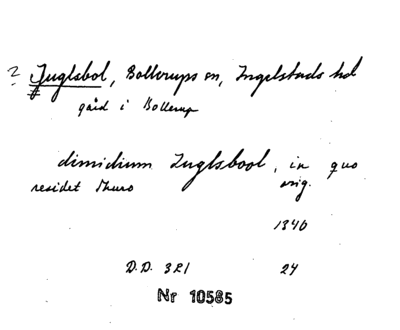 ? Juglsbol, Bollerups sn, Ingelstads hd
gård i Bollerup
dimidium Juglsbool, in quo
residet Thuro orig.
1346
D.D. 321 24
Nr 10585